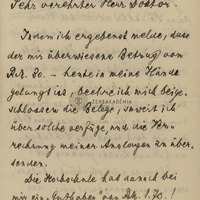 Sehr verehrter Herr Doktor.
Indem ich ergebenst melde, dass
der mir überwiesene Betrag von
Rk. 30. – heute in meine Hände
gelangt ist, beehre ich mich beige-
schlossen die Belege, soweit ich
über solche verfüge, und die Ver-
rechnung meiner Auslagen zu über-
senden.
Die Hochschule hat danach bei
mir ein "Guthaben" von Rk. 1.70.!
ZENEAKADÉMIA